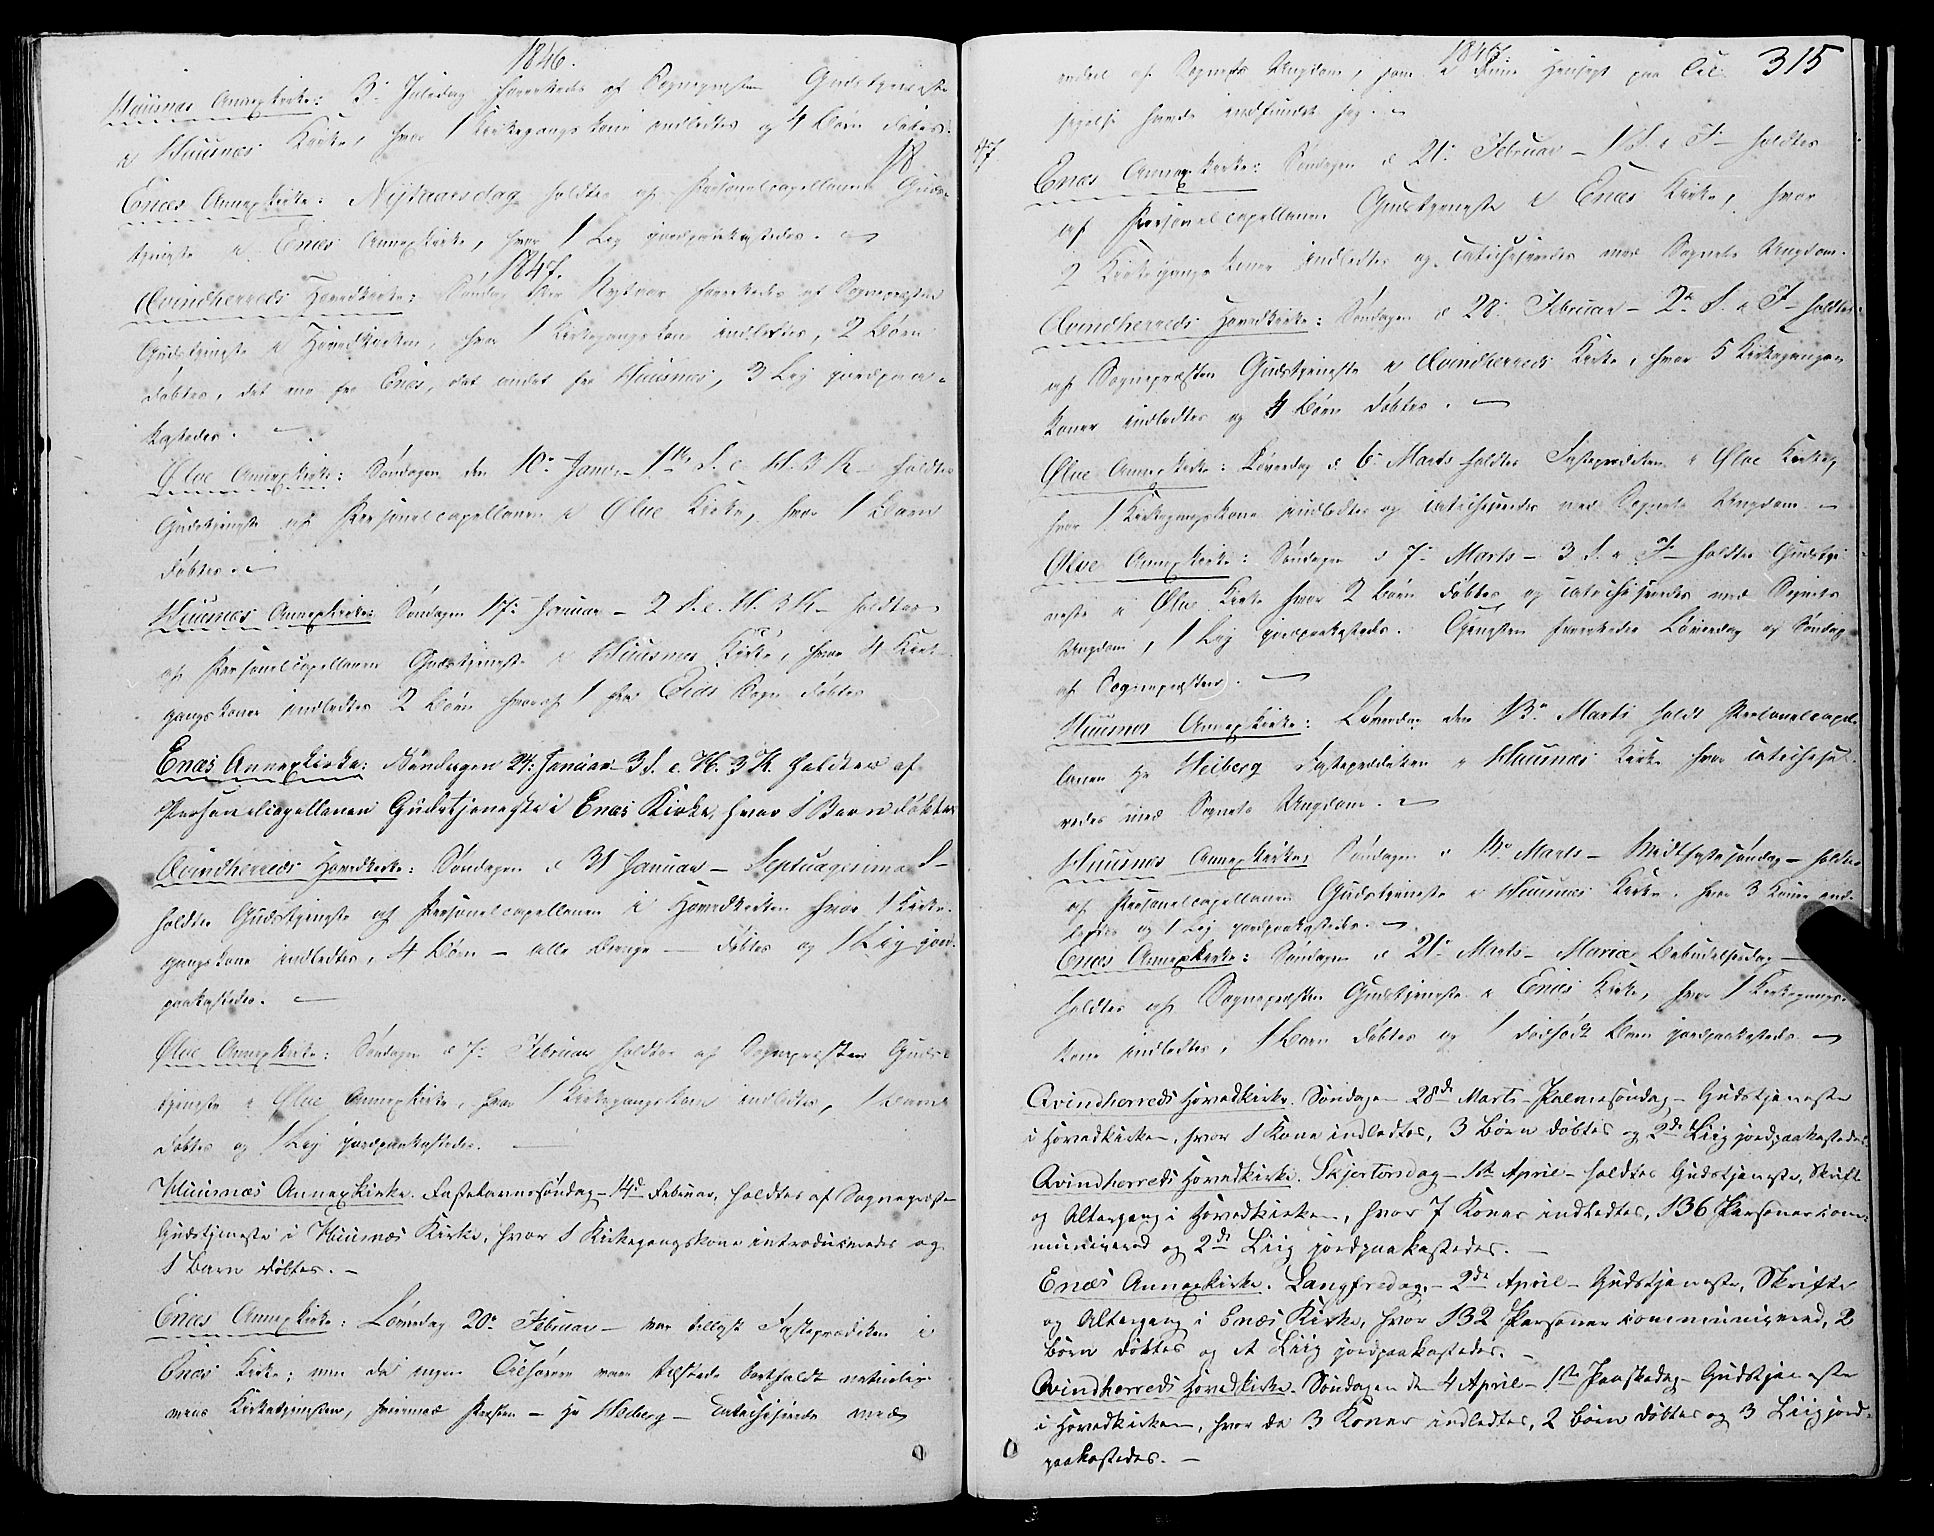 1846.
Huusnæs Annexkirke: 3die Juledag forrettedes af Sognepræsten Gudstjeneste
i Huusnæs Kirke, hvor 1 Kirkegangskone indledtes og 4 Børn døbtes.
Enæs Annexkirke: Nytaarsdag holdtes af Personelcapellanen Guds-
tjeneste i Enæs Annexkirke, hvor 1 Lig jordpaakastedes.
1847.
Qvindherreds Hovedkirke: Søndag efter Nytaar forrettedes af Sognepræsten
Gudstjeneste i Hovedkirken, hvor 1 Kirkegangskone indledtes, 2 Børn
døbtes, det ene fra Enæs, det andet fra Huusnæs, 3 Lig jordpaa-
kastedes.
Ølve Annexkirke: Søndagen den 10de Janr. 1ste S. e. H. 3 K. holdtes
Gudstjeneste af Personelcapellanen i Ølve Kirke, hvor 1 Barn
døbtes.
Huusnæs Annexkirke: Søndagen 17de Januar – 2 S. e. H. 3 K. – holdtes
af Personelcapellanen Gudstjeneste i Huusnæs Kirke, hvor 4 Kirke-
gangskoner indledtes 2 Børn hvoraf 1 fra Eids Sogn døbtes
Enæs Annexkirke: Søndagen 24de Januar 3 S. e. H. 3 K. holdtes af
Personelcapellanen Gudstjeneste i Enæs Kirke, hvor 1 Barn døbtes
Qvindherreds Hovedkirke: Søndagen d. 31 Januar – Septuagesima S –
holdtes Gudstjeneste af Personelcapellanen i Hovedkirken hvor 1 Kirke-
gangskone indledtes, 4 Børn – alle Drenge – døbtes og 1 Lig jord-
paakastedes.
Ølve Annexkirke: Søndagen d. 7de Februar holdtes af Sognepræsten Guds-
tjeneste i Ølve Annexkirke, hvor 1 Kirkegangskone indledtes, 1 Barn
døbtes og 1 Lig jordpaakastedes.
Huusnæs Annexkirke. Fastelavnssøndag – 14d Februar, holdtes af Sognepræsten
Gudstjeneste i Huusnæs Kirke, hvor 1 Kirkegangskone introduceredes og
1 Barn døbtes. –
Enæs Annexkirke: Løverdag 20de Februar – var tillyst Fasteprædiken i
Enæs Kirke; men da ingen Tilhørere vare tilstede bortfaldt
Kirketjenesten, hvorimod Præsten – Hr Heiberg – Catechiserede med
1847 315
endeel af Sognets Ungdom, som i denne Hensigt paa
havde indfundet sig.
47
Enæs Annexkirke: Søndagen d. 21de Februar – 1 S. i F – holdtes
af Personelcapellanen Gudstjeneste i Enæs Kirke, hvor
2 Kirkegangskoner indledtes og catechiseredes med Sognets Ungdom.
Qvindherreds Hovedkirke: Søndagen d 28de Februar – 2den S. i F – holdtes
af Sognepræsten Gudstjeneste i Qvindherreds Kirke, hvor 5 Kirkegangs-
koner indledtes og 4 Børn døbtes.
Ølve Annexkirke: Løverdag d. 6te Marts holdtes Fasteprædiken i Ølve Kirke,
hvor 1 Kirkegangskone indledtes og catechiseredes med Sognets Ungdom –
Ølve Annexkirke: Søndagen d 7de Marts – 3 S. i F – holdtes Gudstje-
neste i Ølve Kirke hvor 2 Børn døbtes og catechiseredes med Sognets
Ungdom, 1 Lig jordpaakastedes. Tjenesten forrettedes Løverdag og Søndag
af Sognepræsten.
Huusnæs Annexkirke: Løverdag den 13de Marts holdt Personelcapel-
lanen Hr Heiberg Fasteprædiken i Huusnæs Kirke hvor catechise-
redes med Sognets Ungdom.
Huusnæs Annexkirke: Søndagen d 14de Marts – Midtfastesøndag – holdtes
af Personelcapellanen Gudstjeneste i Huusnæs Kirke, hvor 3 Koner ind-
ledtes og 1 Lig jordpaakastedes.
Enæs Annexkirke: Søndagen d 21de Marts – Mariæ Bebudelsesdag –
holdtes af Sognepræsten Gudstjeneste i Enæs Kirke, hvor 1 Kirkegangs-
kone indledtes, 1 Barn døbtes og 1 dødfødt Barn jordpaakastedes. –
Qvindherreds Hovedkirke. Søndagen 28de Marts – Palmesøndag – Gudstjeneste
i Hovedkirken, hvor 1 Kone indledtes, 3 Børn døbtes og 2de Liig jordpaakastedes.
Qvindherreds Hovedkirke. Skjertorsdag – 1ste April – holdtes Gudstjeneste, Skrift
og Altergang i Hovedkirken, hvor 7 Koner indledtes, 136 Personer com-
municered og 2de Liig jordpaakastedes. –
Enæs Annexkirke. Langfredag – 2den April – Gudstjeneste, Skrifte
og Altergang i Enæs Kirke, hvor 132 Personer communicered, 2
Børn døbtes og et Liig jordpaakastedes. –
Qvindherreds Hovedkirke. Søndagen den 4 April – 1ste Paaskedag – Gudstjeneste
i Hovedkirken, hvor da 3 Koner indledtes, 2 Børn døbtes og 3 Liig jord-
paakastedes. –